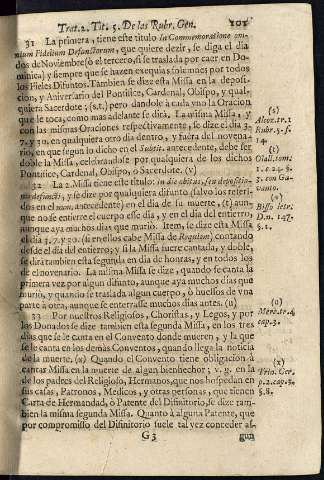 Trat. 2. Tit. 5. De las Rubr. Gen. 101
31 La primera, tiene este titulo In Commemoratione om-
nium Fidelium Defunctorum, que quiere dezir, se diga el dia
dos de Noviembre (ò el tercero, si se traslada por caer en Do-
minica) y siempre que se hazen exequias solemnes por todos
los Fieles Difuntos. Tambien se dize esta Missa en la deposi-
cion, y Aniversario del Pontifice, Cardenal, Obispo, y qual-
quiera Sacerdote; (s.t.) pero dandole à cada vno la Oracion
que le toca, como mas adelante se dirà. La misma Missa, y
con las mismas Oraciones respectivamente, se dize el dia 3.
7. y 30. en qualquiera otro dia dentro, y fuera del novena-
rio, en que segun lo dicho en el Subtit. antecedente, debe ser
doble la Missa, celebrandose por qualquiera de los dichos
Pontifice, Cardenal, Obispo, ò Sacerdote. (v)
32 La 2. Missa tiene este titulo: In die obitus, seu depositio-
nis defuncti; y se dize por qualquiera difunto (salvo los referi-
dos en el num. antecedente) en el dia de su muerte, (t) aun-
que no se entierre el cuerpo esse dia, y en el dia del entierro,
aunque aya muchos dias que muriò. Item, se dize esta Missa
el dia 3. 7. y 30. (si en ellos cabe Missa de Requiem) contando
desde el dia del entierro; y si la Missa fuere cantada, y doble,
se dirà tambien esta segunda en dia de honras, y en todos los
de el novenario. La misma Missa se dize, quando se canta la
primera vez por algun difunto, aunque aya muchos dias que
muriò, y quando se traslada algun cuerpo, ò huessos de vna
parte à otra, aunque se enterrasse muchos dias antes. (u)
33 Por nuestros Religiosos, Choristas, y Legos, y por
los Donados se dize tambien esta segunda Missa, en los tres
dias que se le canta en el Convento donde mueren, y la que
se le canta en los demàs Conventos, quando llega la noticia
de la muerte. (x) Quando el Convento tiene obligacion à
cantar Missa en la muerte de algun bienhechor; v. g. en la
de los padres del Religioso, Hermanos, que nos hospedan en
sus casas, Patronos, Medicos, y otras personas, que tienen
Carta de Hermandad, ò Patente del Difinitorio, se dize tam-
bien la misma segunda Missa. Quanto à alguna Patente, que
por compromisso del Difinitorio suele tal vez conceder al-
G 3 gun
(s)
Alcoz. tr. 1
Rubr. 5. §.
14.
(t)
Olall. tom.
1. n. 24.
3. con Ga-
vanto.
(v)
Bisso letr.
D. n. 147.
§. 1.
(u)
Mero. tr. 4
cap. 3.
(x)
Trio. Cer.
p. 2. cap. 3.
§. 8.